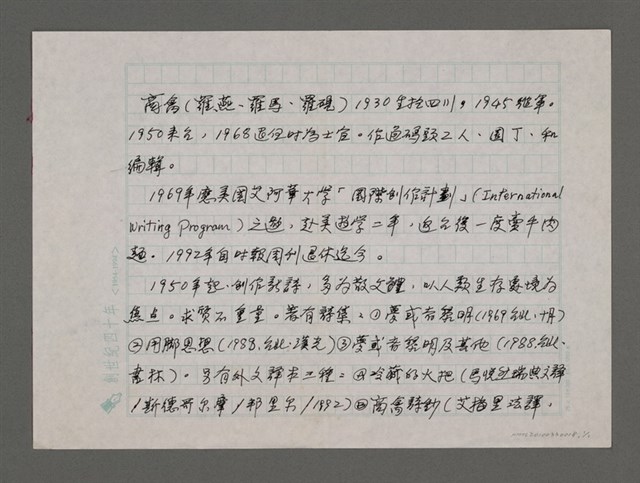 商禽(羅燕、羅馬、羅硯)1930生於四川,1945從軍。
1950來台,1968退伍時為士官。作過碼頭工人、園丁、和
編輯。
1969年應美國艾阿華大学「國際創作計劃」(International
Writing Program)之邀,赴美遊学二年,返台後一度賣牛肉
麵。1992年自時報周刊退休迄今。
1950年起,創作新詩,多為散文體,以人類生存處境為
焦点。求質不重量。著有詩集:①夢或者黎明(1969台北·十月)
②用腳思想(1988.台北·漢光)③夢或者黎明及其他(1988.台北·
書林)。另有外文譯本三種:④冷藏的火把(馬悅然瑞典文譯
/斯德哥尔摩/邦里尔/1992)⑤商禽詩鈔(艾梅里法譯,
創世紀四十年